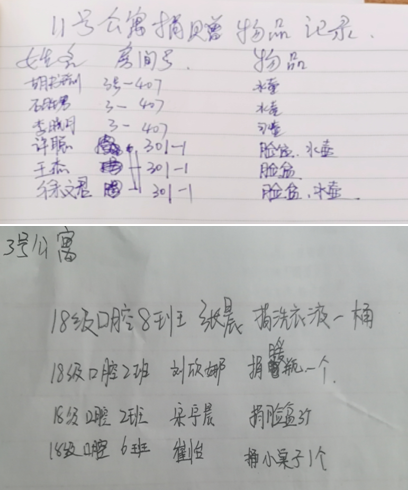 11号公寓捐赠物品记录.
姓名 房间号 物品
3号-407 水壶
3-407 水壶
李 3-407
许 301-1 脸盆、水壶
王杰 301-1 脸盆
徐文君 301-1 脸盆、水壶
3号公寓
18级口腔8班 张晨 捐洗衣液一桶
18级口腔2班 刘欣娜 捐暖瓶一个.
18级口腔2班 晨 捐脸盆
18级口腔6班 捐小桌子1个